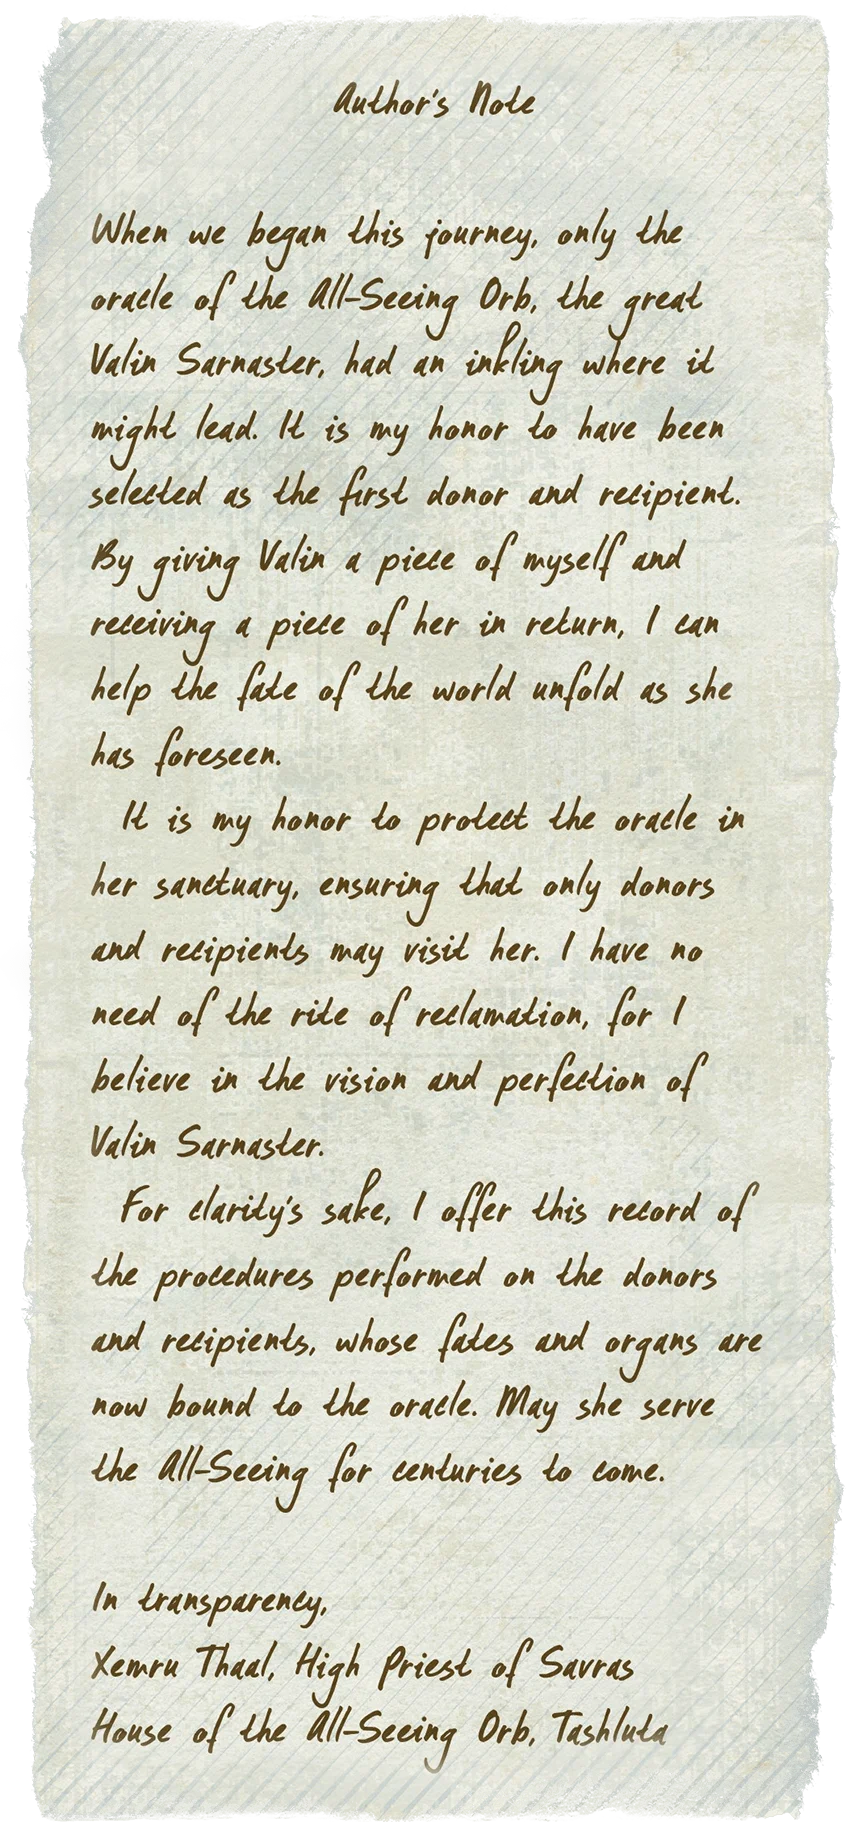 Author's Note
When we began this journey, only the
oracle of the All-Seeing Orb, the great
Valin Sarnaster, had an inkling where it
might lead. It is my honor to have been
selected as the first donor and recipient.
By giving Valin a piece of myself and
receiving a piece of her in return, I can
help the fate of the world unfold as she
has foreseen.
It is my honor to protect the oracle in
her sanctuary, ensuring that only donors
and recipients may visit her. I have no
need of the rite of reclamation, for I
believe in the vision and perfection of
Valin Sarnaster.
For clarity's sake, I offer this record of
the procedures performed on the donors
and recipients, whose fates and organs are
now bound to the oracle. May she serve
the All-Seeing for centuries to come.
In transparency,
Xemru Thaal, High Priest of Savras
House of the All-Seeing Orb, Tashluta